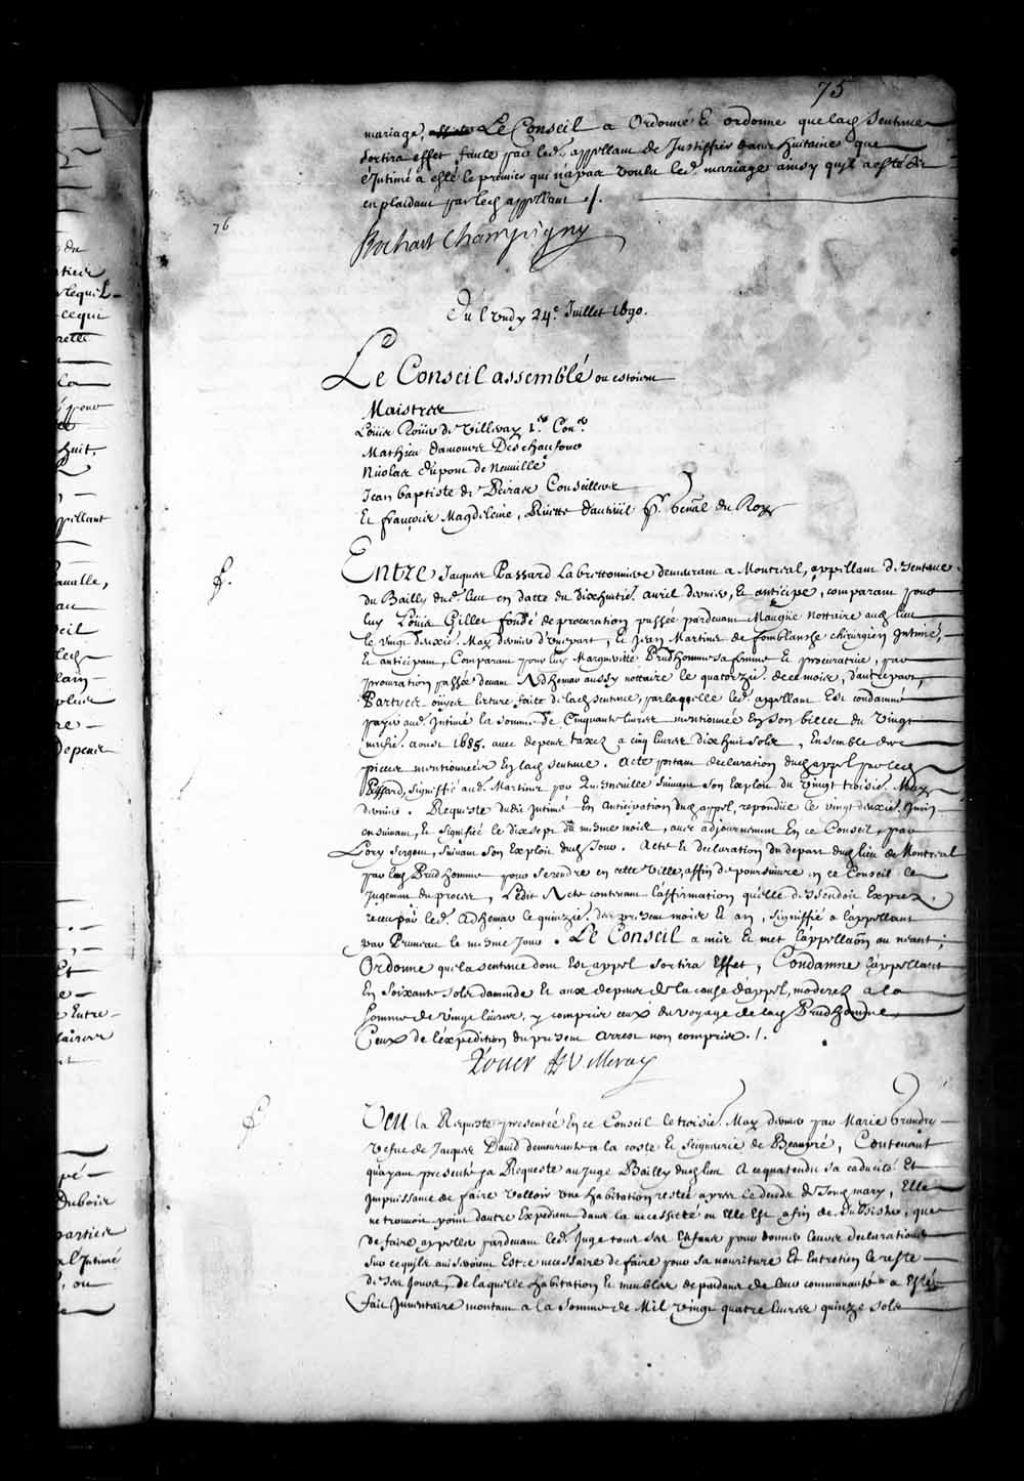 75
mariage, Le Conseil a Ordonné et ordonne que lad. Sentence
Sortira effet faute par led. appellant de Justiffier dans huitaine que
l'Intimé a esté le premier qui n'a pas voulu led. mariage ainsy qu'il a esté dit
en plaidant par led. appellant ./.
76
Bochart Champigny
Du Lundy 24e. Juillet 1690.
Le Conseil assemblé ou estoient
Maistres
Loüis Roüer de Villeray 1er. Con.er
Mathieu Damours Deschaufour
Nicolas Dupont de Neuville
Jean baptiste de Peiras Conseillers
Et françois Magdeleine Ruette Dauteüil Pr. General du Roy
Entre Jacques Passard La brettonniere demeurant a Montreal, appellant de Sentence
du Bailly dud. lieu en datte du dixhuitie. avril dernier, et anticipé, comparant pour
luy Loüis Gillet fondé de procuration passée pardevant Maugüe nottaire aud. lieu
le vingt deuxie. May dernier d'une part, Et Jean Martinet de fomblanche chirurgien Intimé,
Et anticipant, Comparant pour luy Marguerite Prudhomme sa femme Et procuratrice, par
procuration passée devant Adhemar aussy nottaire le quatorzie. de ce mois, d'autre part,
Partyes oüyes lecture faite de lad. sentence, par laquelle led. appellant Est condamné
payer aud. Intimé la somme de Cinquante livres mentionnée En son billet du vingt
neufie. aoust 1685. avec depens taxez a cinq livres dix huit sols, Ensemble des
pieces mentionnées En lad. sentence. Acte portant declaration dud. appel par led.
Passard, signiffié aud. Martinet par Quesneville suivant son Exploit du vingt troisie. May
dernier. Requeste dudit Intimé En Anticipation dud. appel, repondüe le vingt deuxie. Juin
en suivant, et signifiée le dixsept du mesme mois, avec adjournement En ce Conseil, par
Lory sergent, suivant son Exploit dud. Jour. Acte de declaration du depart dud. lieu de Montreal
par lad. Prudhomme pour se rendre en cette ville, affin de poursuivre en ce Conseil le
Jugement du proces, Ledit Acte contenant l'affirmation qu'elle dessendoit Exprez,
receu par led. Adhemar le quinzie. des present mois et an, signiffié a l'appellant
par Pruneau le mesme Jour. Le Conseil a mis Et met l'appellation au neant;
Ordonne que la sentence dont Est appel sortira Effet, Condamne l'appellant
En Soixante sols damende Et aux depens de la cause d'appel, moderez a la
somme de vingt livres, y compris ceux du voyage de lad. Prudhomme,
Ceux de l'expedition du present arrest non compris ./.
Roüer de Villeray
Veu la Requeste presentée En ce Conseil le troisie. May dernier par Marie Grandry
Vefve de Jacques David demeurante a la coste Et Seigneurie de Beaupré, Contenant
qu'ayant presenté sa Requeste au Juge Bailly dud. lieu A ce qu'attendu sa caducité Et
Impuissance de faire valloir une habitation restée apres le decedz de Son d. mary, Elle
ne trouvoit point d'autre Expedient dans la necessité ou Elle Est afin de subsister, que
de faire appeller pardevant led. Juge tous ses Enfans pour donner leurs declarations
sur ce qu'ils avisseroient Estre necessaire de faire pour sa nouriture Et Entretien le reste
de ses jours, de laquelle habitation Et meubles dependans de leur communauté a Esté
fait Inventaire montant a la somme de Mil vingt quatre livres quinze sols